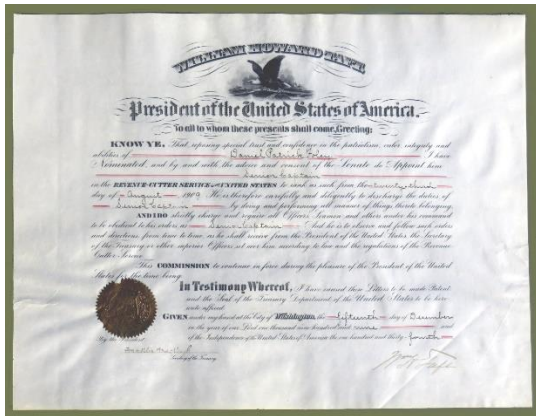 WILLIAM HOWARD TAFT
President of the United States of America.
To all to whom these presents shall come, Greeting:
KNOW YE, That reposing special trust and confidence in the patriotism, valor, integrity and
abilities of Daniel Patrick Foley I have
nominated, and by and with the advice and consent of the Senate do Appoint him
Senior Captain
in the REVENUE-CUTTER SERVICE of the UNITED STATES to rank as such from the twenty third
day of August 1909. He is therefore carefully and diligently to discharge the duties of
Senior Captain by doing and performing all manner of things thereto belonging.
AND I DO strictly charge and require all Officers, Seamen and others under his command
to be obedient to his orders as Senior Captain And he is to observe and follow such orders
and directions, from time to time, as he shall receive from the President of the United States, the Secretary
of the Treasury or other superior Officers set over him according to law and the regulations of the Revenue
Cutter Service.
This COMMISSION to continue in force during the pleasure of the President of the United
States for the time being.
In Testimony Whereof, I have caused these Letters to be made Patent
and the Seal of the Treasury Department of the United States to be here-
unto affixed.
GIVEN under my hand at the City of Washington, the fifteenth day of December
in the year of our Lord one thousand nine hundred and nine and
of the Independence of the United States of America the one hundred and thirty-fourth
By the President:
Franklin MacVeagh
Secretary of the Treasury.
Wm H Taft